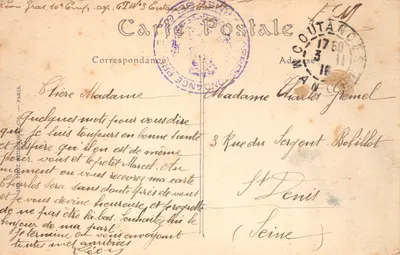 Léon Gras
Carte Postale
Correspondance
Adresse
COUTANCES
17 50
3 11
MANCHE
PARIS.
Chère Madame
Quelques mots pour vous dire
que je suis toujours en bonne santé
et espère qu'il en est de même
pour vous et le petit Marcel. Au
moment où vous recevrez ma carte
Charles sera sans doute près de vous
et je vous devine heureuse, et regrette
de ne pas être là-bas. Souhaitez lui le
bonjour de ma part.
Je termine en vous envoyant
toutes mes amitiés
Léon
Madame Charles
3 Rue du Sergent Bobillot
St Denis
(Seine)